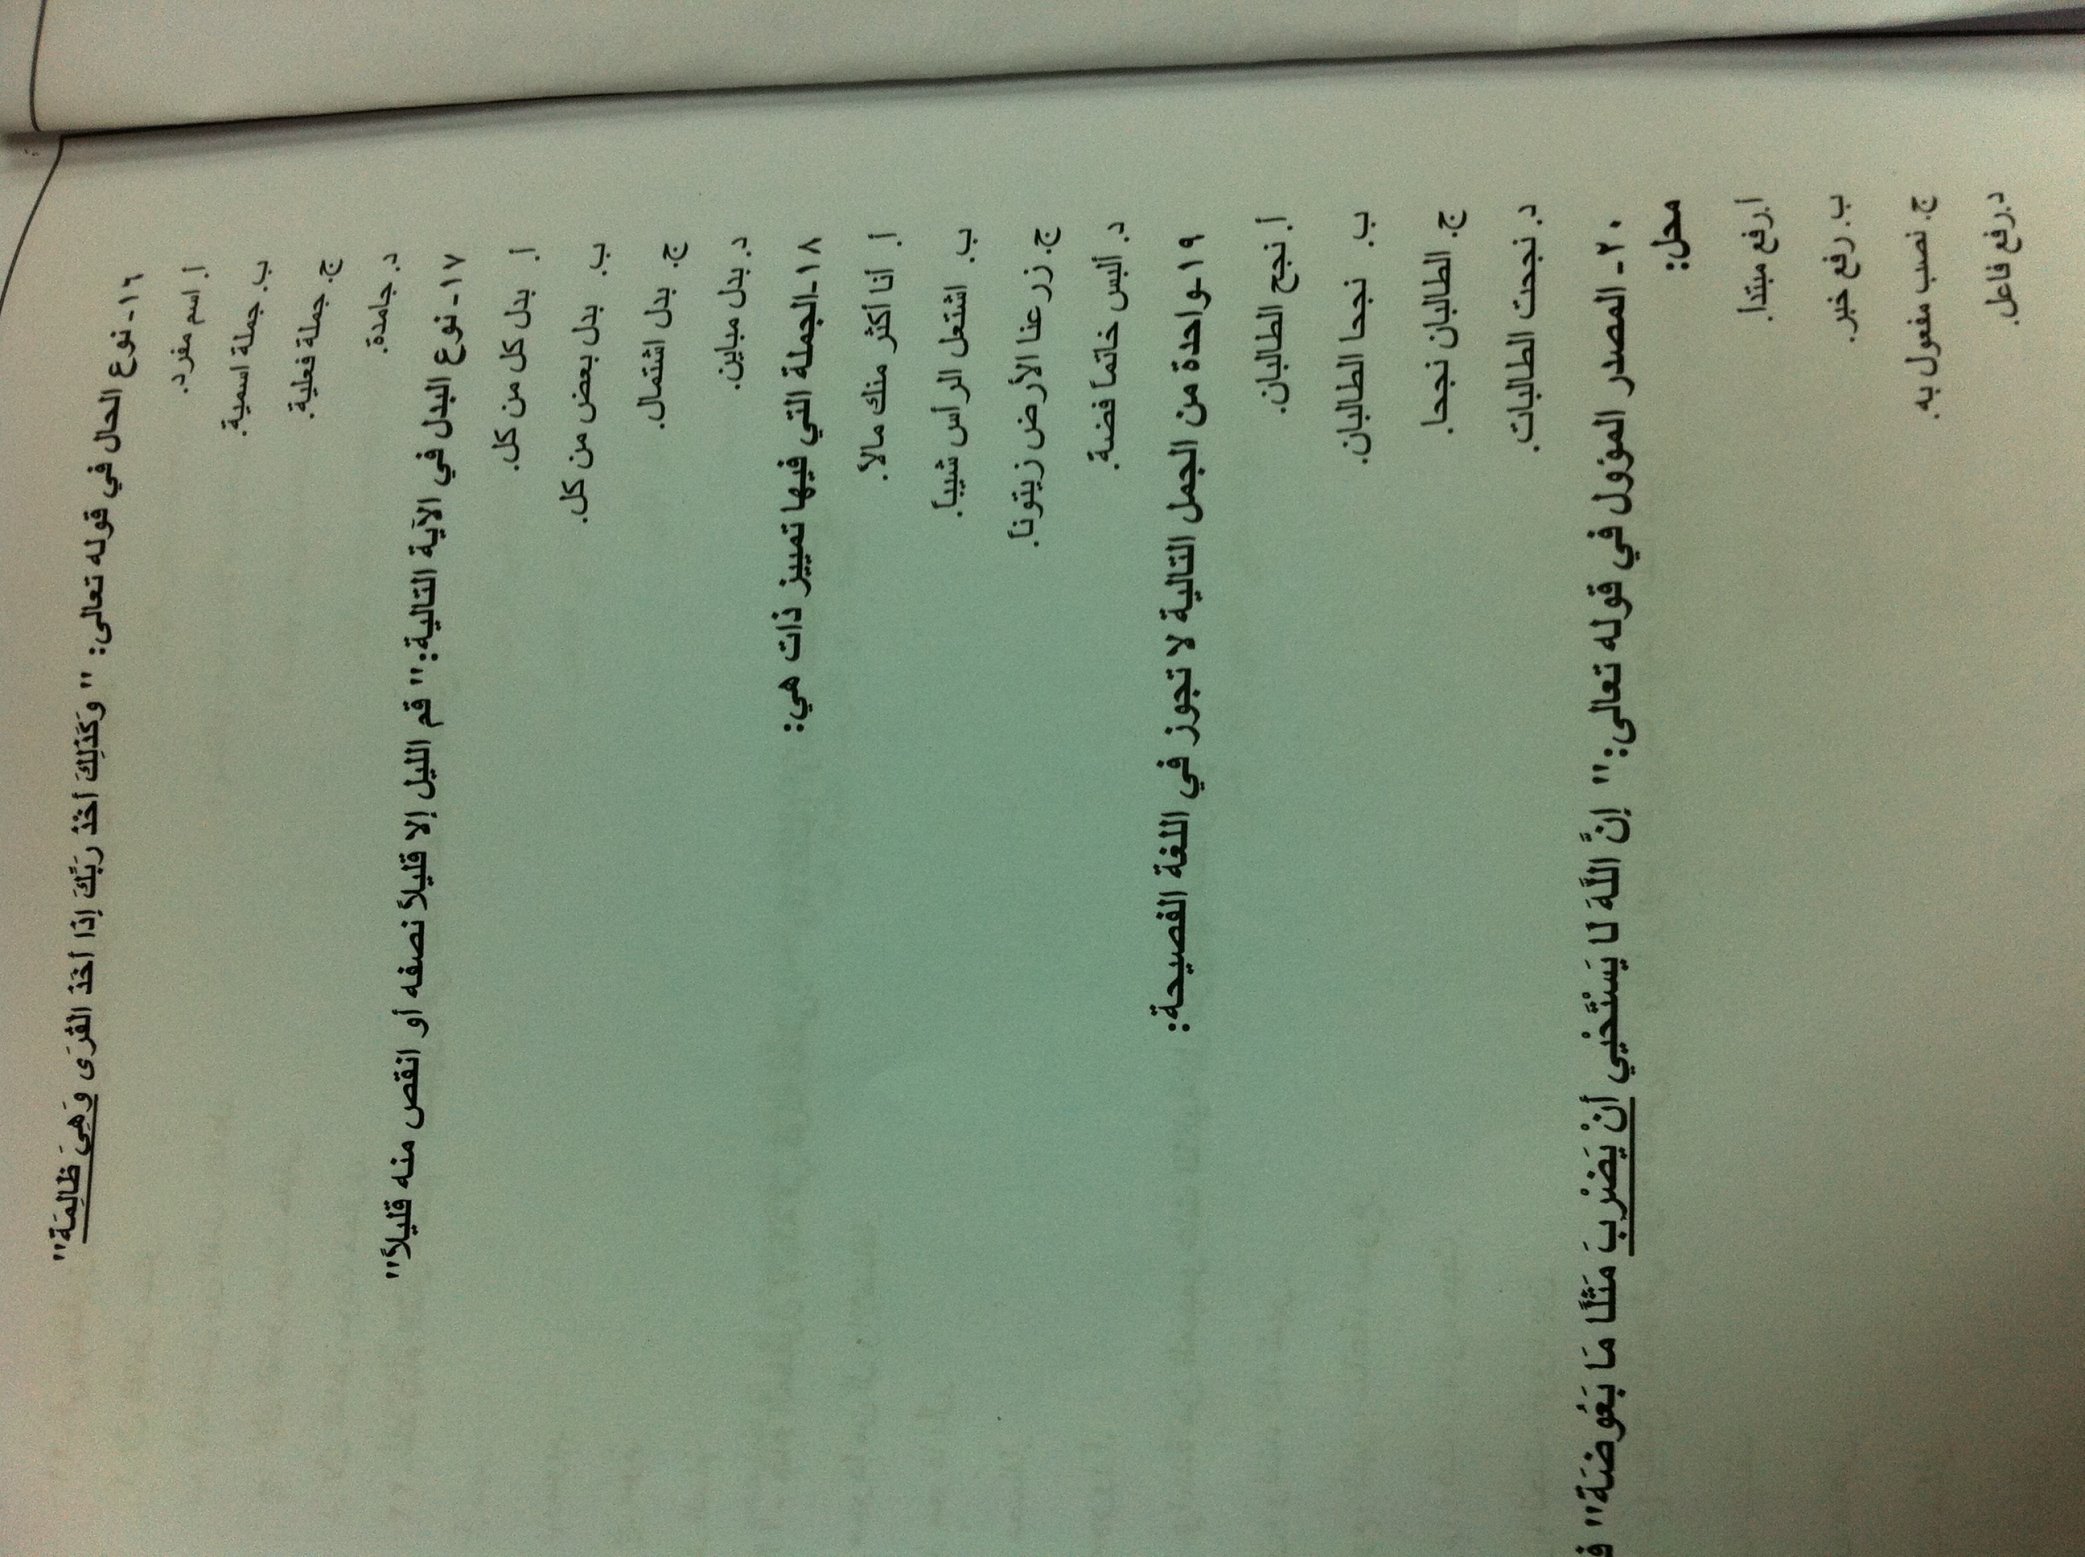 ١٦- نوع الحال في قوله تعالى: " وَكَذَلِكَ أَخْذُ رَبِّكَ إِذَا أَخَذَ الْقُرَى وَهِيَ ظَالِمَة"
أ. اسم مفرد.
ب. جملة اسمية.
ج. جملة فعلية.
د. جامدة.
١٧- نوع البدل في الآية التالية:" قم الليل إلا قليلاً نصفه أو انقص منه قليلاً"
أ. بدل كل من كل.
ب. بدل بعض من كل.
ج. بدل اشتمال.
د. بدل مباين.
١٨-الجملة التي فيها تمييز ذات هي:
أ. أنا أكثر منك مالاً.
ب. اشتعل الرأس شيباً.
ج. زرعنا الأرض زيتوناً.
د. ألبس خاتماً فضة.
١٩-واحدة من الجمل التالية لا تجوز في اللغة الفصيحة:
أ. نجح الطالبان.
ب. نجحا الطالبان.
ج. الطالبان نجحا.
د. نجحت الطالبات.
٢٠- المصدر المؤول في قوله تعالى:" إِنَّ اللَّهَ لَا يَسْتَحْيِي أَنْ يَضْرِبَ مَثَلًا مَا بَعُوضَة"
محل:
أ. رفع مبتدأ.
ب. رفع خبر.
ج. نصب مفعول به.
د. رفع فاعل.